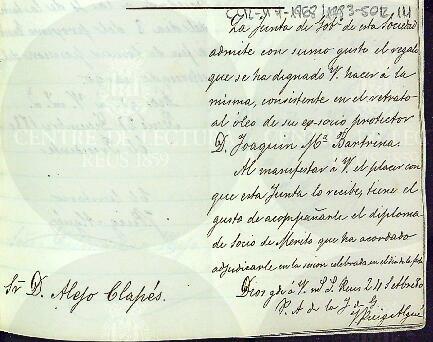 La Junta de Gob.º de esta Sociedad
admite con sumo gusto el regalo
que se ha dignado V. hacer á la
misma, consistente en el retrato
al óleo de su ex-socio protector
D. Joaquin Mª Bartrina.
Al manifestar á V. el placer con
que esta Junta lo recibe, tiene el
gusto de acompañarle el diploma
de Socio de Merito que ha acordado
adjudicarle en la sesion celebrada en el dia de la fecha
Dios gde á V. ms. Reus 24
P. A de la J de G
Sr D. Alejo Clapés.
CENTRE DE LECTURA
REUS 1859